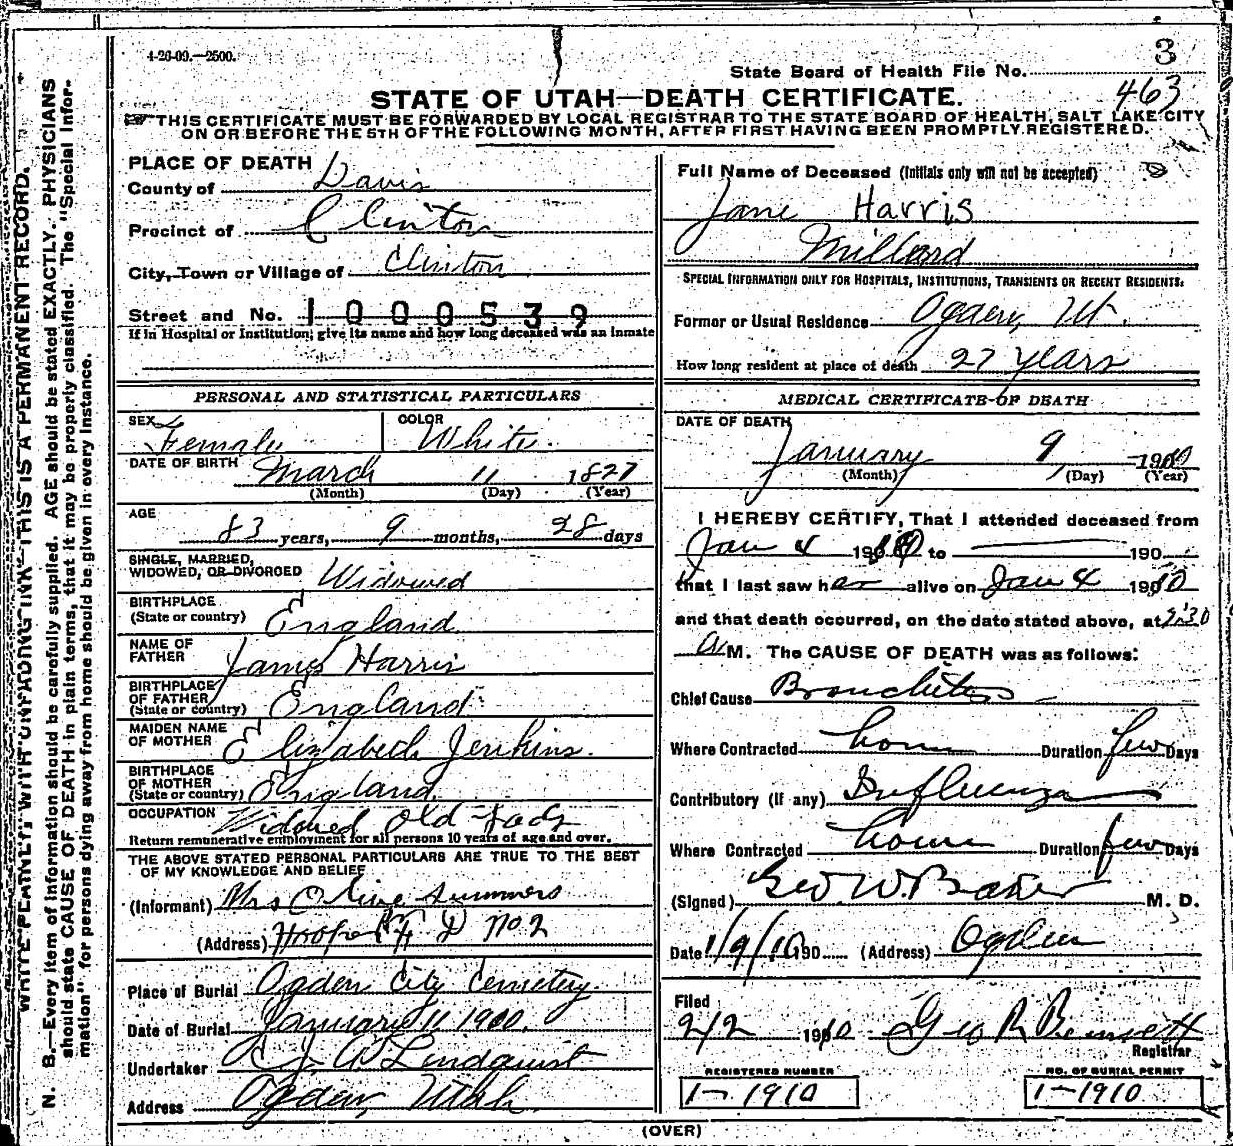 4-26-09.—2500.
3
State Board of Health File No.
463
STATE OF UTAH—DEATH CERTIFICATE.
THIS CERTIFICATE MUST BE FORWARDED BY LOCAL REGISTRAR TO THE STATE BOARD OF HEALTH, SALT LAKE CITY
ON OR BEFORE THE 5TH OF THE FOLLOWING MONTH, AFTER FIRST HAVING BEEN PROMPTLY REGISTERED.
WRITE PLAINLY, WITH UNFADING INK—THIS IS A PERMANENT RECORD.
N. B.—Every item of information should be carefully supplied. AGE should be stated EXACTLY. PHYSICIANS
should state CAUSE OF DEATH in plain terms, that it may be properly classified. The "Special Infor-
mation" for persons dying away from home should be given in every instance.
PLACE OF DEATH
County of Davis
Precinct of Clinton
City, Town or Village of Clinton
Street and No. 1000539
If in Hospital or Institution, give its name and how long deceased was an inmate
PERSONAL AND STATISTICAL PARTICULARS
SEX Female COLOR White
DATE OF BIRTH March 11 1827
(Month) (Day) (Year)
AGE
83 years, 9 months, 28 days
SINGLE, MARRIED,
WIDOWED, OR DIVORCED Widowed
BIRTHPLACE
(State or country) England
NAME OF
FATHER James Harris
BIRTHPLACE
OF FATHER
(State or country) England
MAIDEN NAME
OF MOTHER Elizabeth Jenkins
BIRTHPLACE
OF MOTHER
(State or country) England
OCCUPATION Widowed Old Lady
Return remunerative employment for all persons 10 years of age and over.
THE ABOVE STATED PERSONAL PARTICULARS ARE TRUE TO THE BEST
OF MY KNOWLEDGE AND BELIEF
(Informant) Mrs Olive Summers
(Address) Hooper R F D No. 2
Place of Burial Ogden City Cemetery.
Date of Burial January 11, 1910.
Undertaker Lindquist
Address Ogden, Utah.
Full Name of Deceased (Initials only will not be accepted)
Jane Harris
Millard
SPECIAL INFORMATION ONLY FOR HOSPITALS, INSTITUTIONS, TRANSIENTS OR RECENT RESIDENTS.
Former or Usual Residence Ogden, Ut.
How long resident at place of death 27 years
MEDICAL CERTIFICATE OF DEATH
DATE OF DEATH
January 9 1910
(Month) (Day) (Year)
I HEREBY CERTIFY, That I attended deceased from
Jan 4 1910 to 190
that I last saw her alive on Jan 4 1910
and that death occurred, on the date stated above, at 2:30
A M. The CAUSE OF DEATH was as follows:
Chief Cause Bronchitis
Where Contracted home Duration few Days
Contributory (If any) Influenza
Where Contracted home Duration few Days
(Signed) Geo. W. Baker M. D.
Date 1/9/10 190 (Address) Ogden
Filed
2/2 1910 Geo R Bennett
Registrar
REGISTERED NUMBER
1-1910
NO. OF BURIAL PERMIT
1-1910
(OVER)